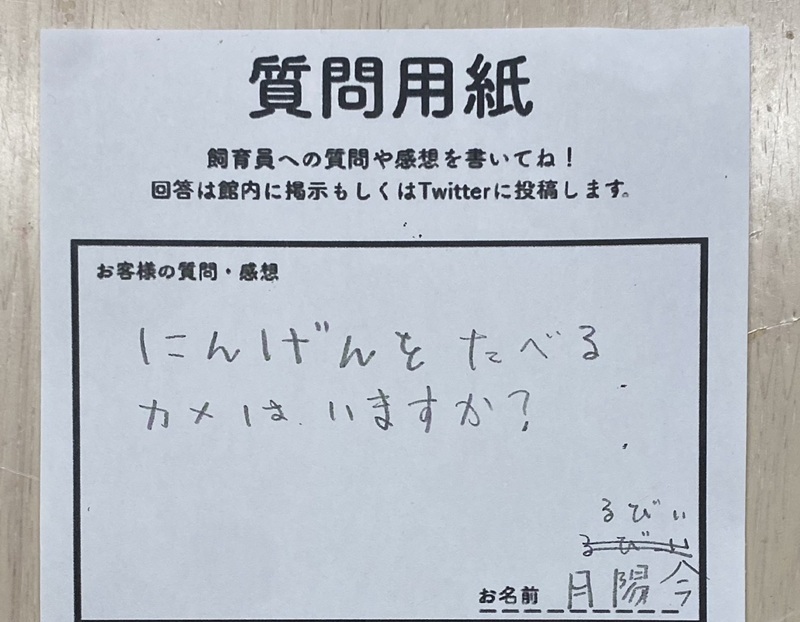 質問用紙
飼育員への質問や感想を書いてね！
回答は館内に掲示もしくはTwitterに投稿します。
お客様の質問・感想
にんげんをたべる
カメは、いますか？
るびい
るびい
お名前 月陽今